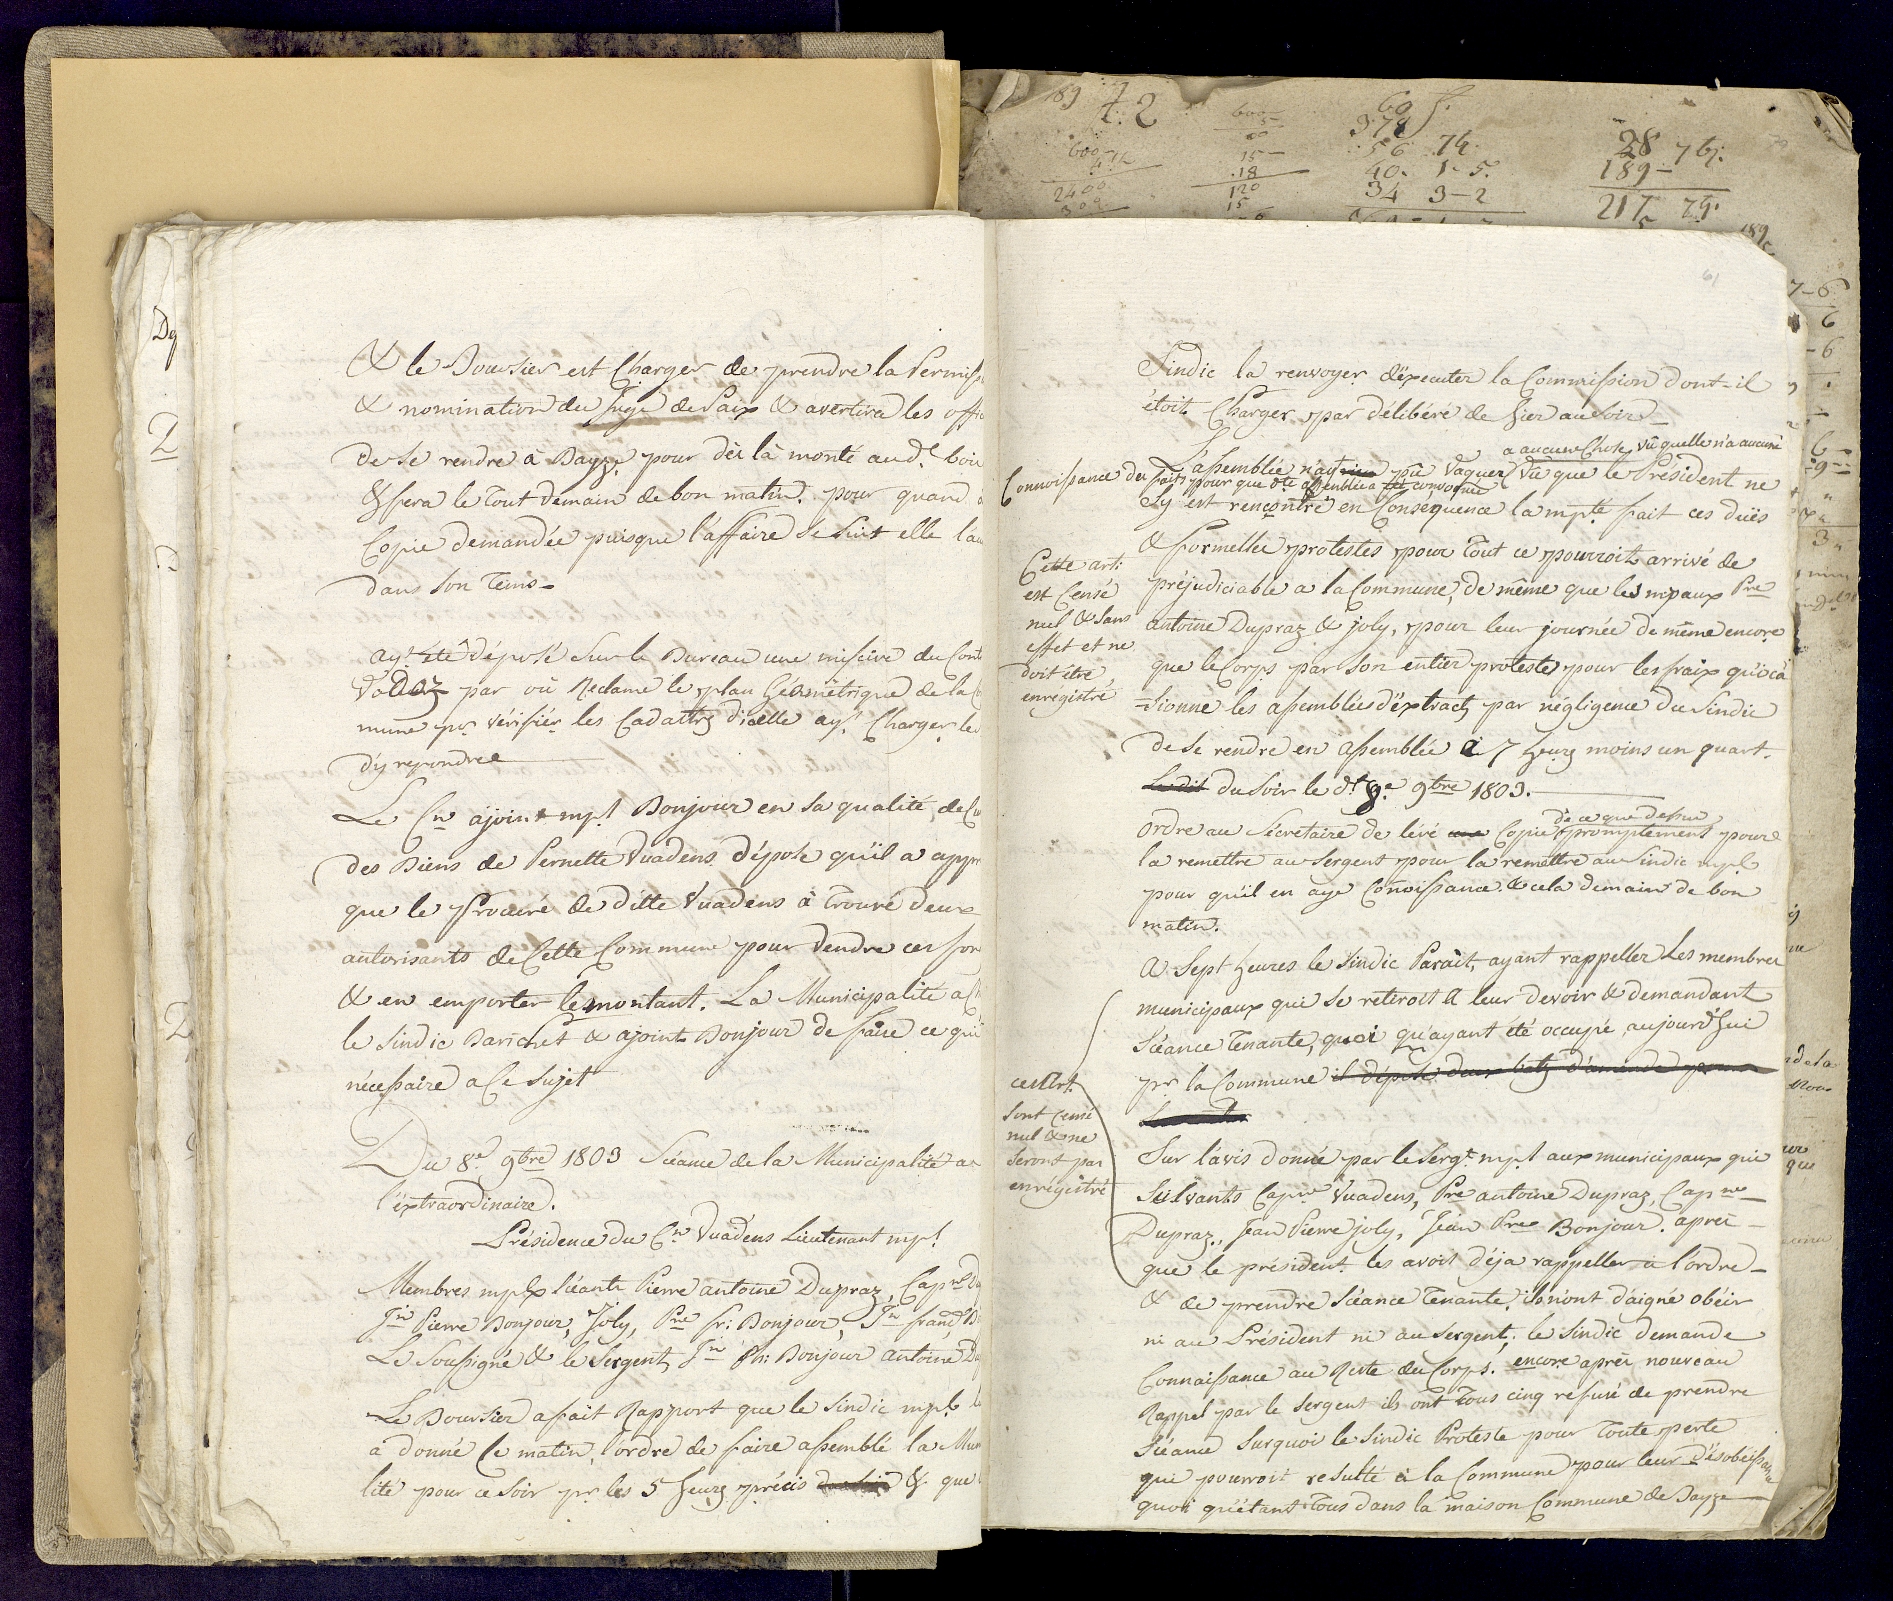 & le Boursier est Charger de prendre la Permiss
& nomination du Juge de Paix & avertira les offi
de se rendre à Bayze pour dèi là monté au d.t boi
& fera le tout demain de bon matin. pour quand
Copie demandée puisque l'affaire se suit elle l'au
dans son Tems-
ay.t été déposé sur le Bureau une miscive du Cont
Vodoz par où Reclame le plan Géométrique de la
mune pr. vérifiér les Cadattres d'icelle ay.t Charger le
d'y repondree
Le C.n ajoint mp.l Bonjour en sa qualité de Cu
des Biens de Pernette Vuadens dépose qu'il a appr
que le Procuré de ditte Vuadens à trouvé deux
autorisants de Cette Commune pour vendre ces fon
& en emporter le montant. La Municipalité a Ch
le Sindic Barichet & ajoint Bonjour de faire ce qu'i
nécessaire a Ce Sujet
Du 8.e 9bre 1803 Séance de la Municipalité a
l'éxtraordinaire.
Présidence du C.n Vuadens Lieutenant mp.l
Membres mp.lx séants Pierre antoine Dupraz, Cap.ne Du
J.n Pierre Bonjour, Joly, P.re fr: Bonjour, J.n franç B
Le Soussigné & le Sergent J.n Ph: Bonjour antoine Du
Le Boursier a fait Rapport que le Sindic mp.l
a donné Ce matin, l'ordre de faire assemblé la Mun
lité pour ce Soir pr. les 5 heures précis & que
61
Sindic la renvoyer d'éxecuter la Commission dont-il
étoit Charger par délibéré de hier au soir-
a aucune Chose, vû quelle n'a aucune
L'assemblée n'ayt pû vaquer vû que le Président ne
Connoissance des faits pour que cette assemblée a été convoquée
s'y est rencontré en Conséquence la mp.té fait ces duës
& formelles protestes pour tout ce pourroit arrivé de
préjudiciable a la Commune, de même que les mpaux P.re
antoine Dupraz & joly, pour leur journée de même encore
que le Corps par son entier proteste pour les fraix qu'oca
=sionne les assemblées d'éxtracts par négligence du Sindic
de se rendre en assemblée à 7 heures moins un quart.
Le dit du soir le d.t 8.e 9bre 1803.
Cette arti
est Censé
nul & sans
effet et ne
doit être
enregistré
de ce que dessus
ordre au Sécretaire de lévé une Copie promptement pour
la remettre au sergent pour la remettre au Sindic mp.l
pour qu'il en aye Coñoissance & cela demain de bon
matin.
A Sept heures le Sindic Parait, ayant rappeller Les membres
municipaux qui se retiroit A leur devoir & demandant
Séance Tenante, quoi qu'ayant été occupé aujourd'hui
pr. la Commune il dépose deux batz d'amende pour
ces Art.
sont censé
nul & ne
seront pas
enrégistré
Sur l'avis donnée par le Serg.t mp.l aux municipaux qui
Suivants Cap.ne Vuadens, P.re antoine Dupraz, Cap.ne
Dupraz, Jean Pierre joly, Jean P.re Bonjour. aprèi
que le président les avoit déja rappeller à l'ordre-
& de prendre Séance tenante, ils n'ont daigné obéir
ni au Président ni au Sergent; le Sindic demande
Connaissance au Reste du Corps. encore aprèi nouveau
Rappel par le Sergent ils ont tous cinq refusé de prendre
Séance Surquoi le Sindic Proteste pour toute perte
qui pourroit resulté à la Commune pour leur désobéissance
quoi qu'étant tous dans la maison Commune de Bayze
189
7.2
69
378
56 74.
40. 1-5.
34 3-2
15-
.18
120
15
2400
28 76.
189-
217 79.